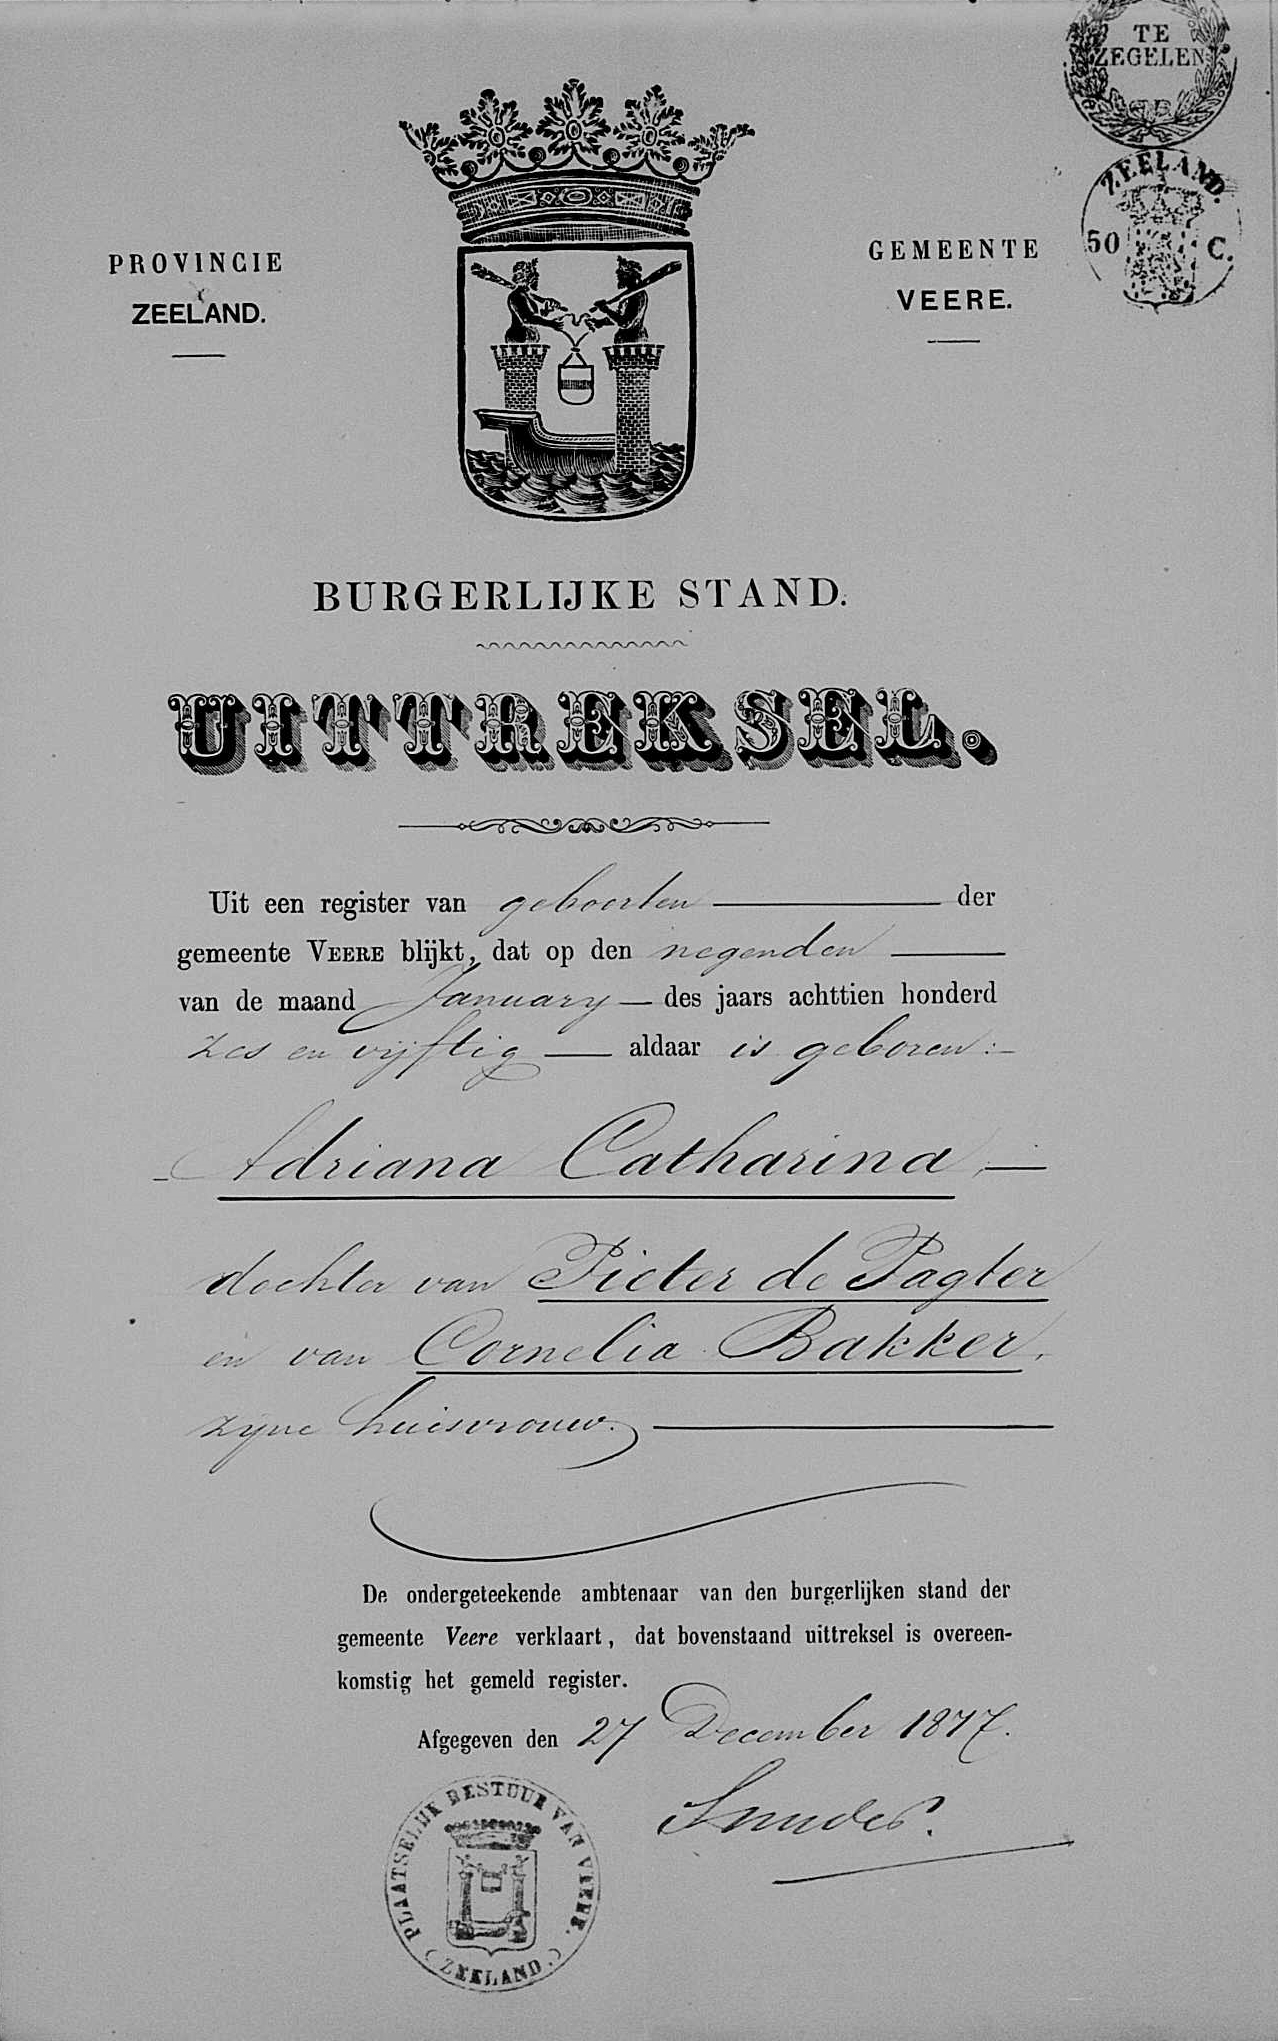 TE
ZEGELEN
ZEELAND.
50 C.
PROVINCIE
ZEELAND.
GEMEENTE
VEERE.
BURGERLIJKE STAND.
UITTREKSEL.
Uit een register van geboorten der
gemeente VEERE blijkt, dat op den negenden
van de maand January des jaars achttien honderd
zes en vijftig aldaar is geboren:
Adriana Catharina
dochter van Pieter de Pagter
en van Cornelia Bakker,
zijne huisvrouw.
De ondergeteekende ambtenaar van den burgerlijken stand der
gemeente Veere verklaart, dat bovenstaand uittreksel is overeen-
komstig het gemeld register.
Afgegeven den 27 December 1877.
PLAATSELIJK BESTUUR VAN VEERE.
(ZEELAND.)